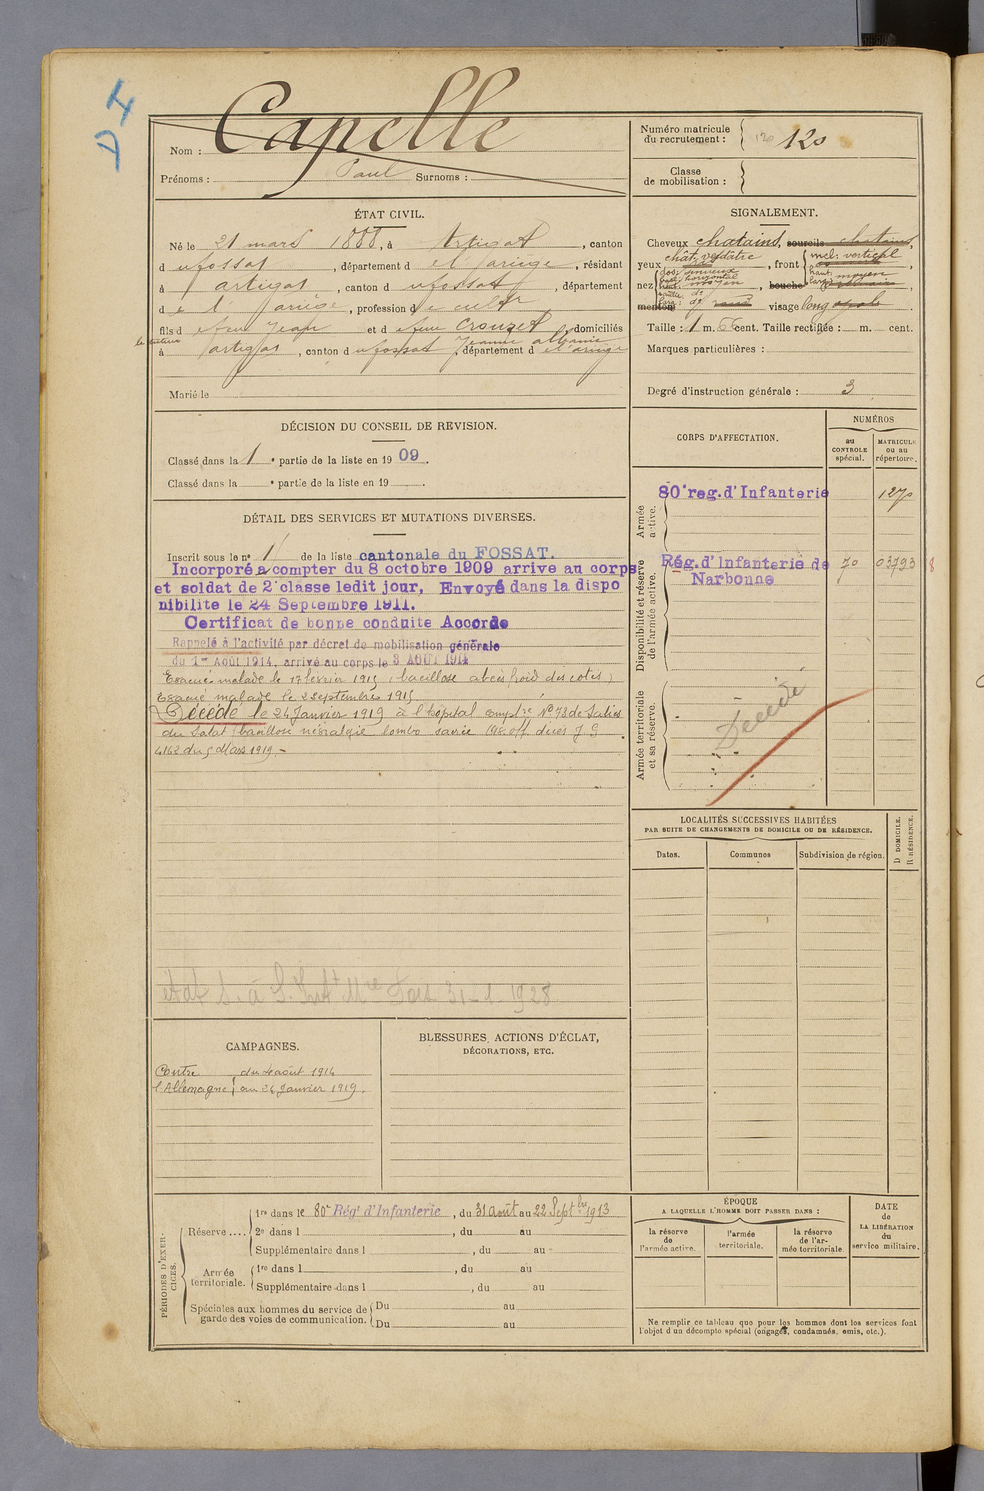 D I
Capelle
Nom :
Prénoms : Paul Surnoms :
Numéro matricule
du recrutement : 120
Classe
de mobilisation :
ÉTAT CIVIL.
Né le 21 mars 1888, à Artigat, canton
d u fossat, département d e l'ariège, résidant
à artigat, canton d u fossat, département
d e l'ariège, profession de cultr
fils d e feu Jean et d e feue Crouzet domiciliés
Jeanne
à artigat, canton d u fossat, département d e l'ariège
Marié le
SIGNALEMENT.
Cheveux chatains, sourcils chatains,
yeux chât. verdâtre, front incl: vertical
haut: moyen
nez dos: sinueux
base: horizontal
haut: moyen
bouche
menton visage long ovale
Taille : 1 m. cent. Taille rectifiée : m. cent.
Marques particulières :
Degré d'instruction générale : 3
DÉCISION DU CONSEIL DE REVISION.
Classé dans la 1 e partie de la liste en 19 09.
Classé dans la e partie de la liste en 19 .
CORPS D'AFFECTATION.
NUMÉROS
au
CONTROLE
spécial.
MATRICULE
ou au
répertoire.
Armée
active.
80e reg. d'Infanterie 1270
Disponibilité et réserve
de l'armée active.
Rég. d'Infanterie de 70 03793
Narbonne
Armée territoriale
et sa réserve.
Décédé
DÉTAIL DES SERVICES ET MUTATIONS DIVERSES.
Inscrit sous le n° 1 de la liste cantonale du FOSSAT.
Incorporé à compter du 8 octobre 1909 arrive au corps
et soldat de 2e classe ledit jour, Envoyé dans la dispo
nibilite le 24 Septembre 1911.
Certificat de bonne conduite Accordé
Rappelé à l'activité par décret de mobilisation générale
du 1er Août 1914, arrivé au corps le 3 AOUT 1914
Evacué malade le 17 février 1915 (bacillose abcès froid des côtes)
Evacué malade le 2 septembre 1915
Décédé le 24 Janvier 1919 à l'hôpital complre N° 93 de Salies
du Salat (bacillose névralgie lombo sacrée
4162 du 5 Mars 1919.-
31-1-1928
LOCALITÉS SUCCESSIVES HABITÉES
PAR SUITE DE CHANGEMENTS DE DOMICILE OU DE RÉSIDENCE.
Dates.
Communes
Subdivision de région.
D. DOMICILE.
R. RÉSIDENCE.
CAMPAGNES.
Contre du 4 août 1914
l'Allemagne au 24 Janvier 1919.
BLESSURES, ACTIONS D'ÉCLAT,
DÉCORATIONS, ETC.
PÉRIODES D'EXER-
CICES.
Réserve ....
1re dans le 80e Régt d'Infanterie, du 31 août au 22 Septbre 1913
2e dans l , du au
Supplémentaire dans l , du au
Armée
territoriale.
1re dans l , du au
Supplémentaire dans l , du au
Spéciales aux hommes du service de
garde des voies de communication.
Du au
Du au
ÉPOQUE
A LAQUELLE L'HOMME DOIT PASSER DANS :
la réserve
de
l'armée active.
l'armée
territoriale.
la réserve
de l'ar-
mée territoriale.
DATE
de
LA LIBÉRATION
du
service militaire.
Ne remplir ce tableau que pour les hommes dont les services font
l'objet d'un décompte spécial (engagés, condamnés, omis, etc.).